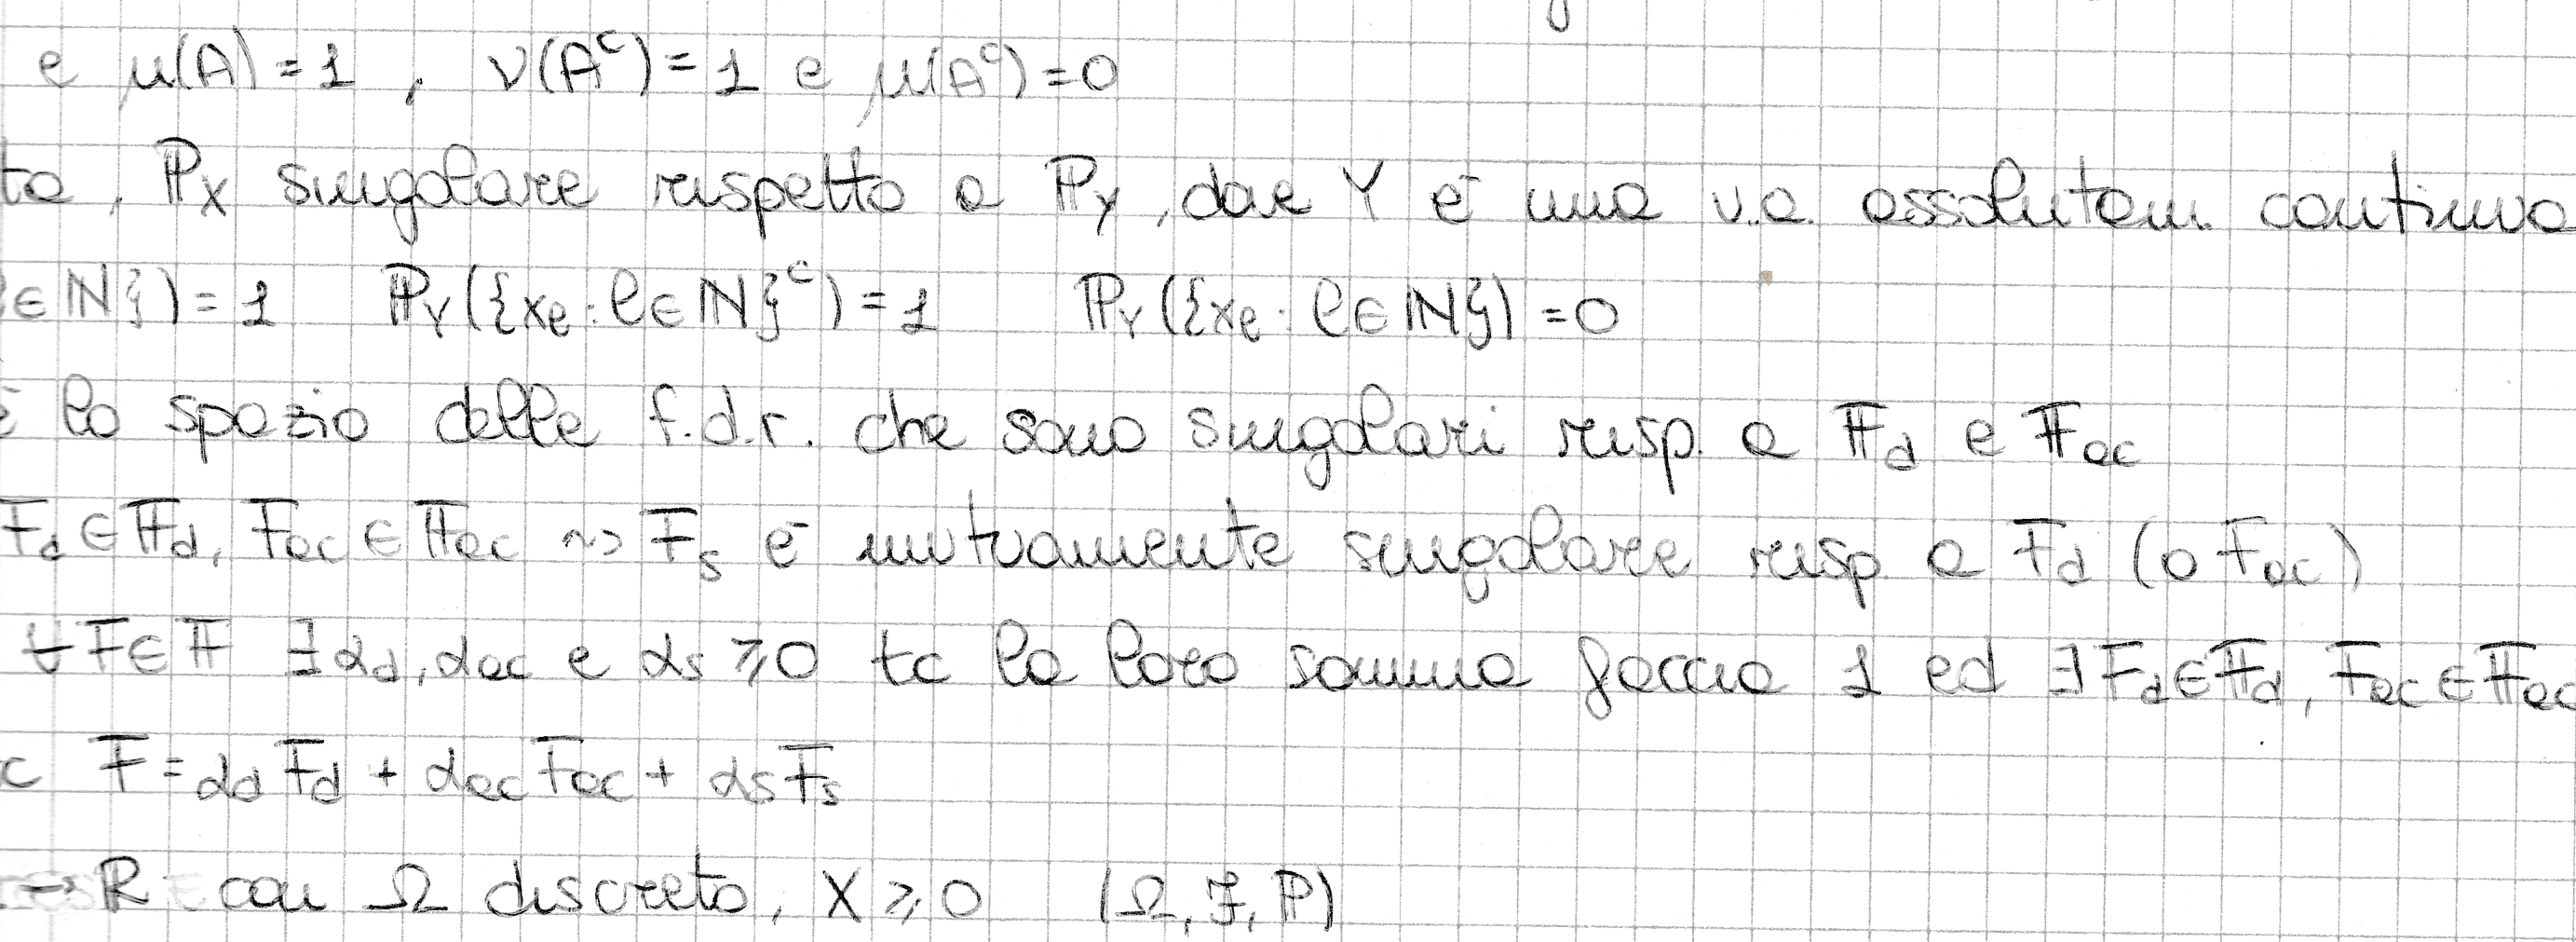 e μ(A) = 1 , ν(Aᶜ) = 1 e μ(Aᶜ) = 0
ta, ℙ_X singolare rispetto a ℙ_Y, dove Y è una v.a. assolutam. continua
∈ ℕ}) = 1 ℙ_Y({x_e : e ∈ ℕ}ᶜ) = 1 ℙ_Y({x_e : e ∈ ℕ}) = 0
è lo spazio delle f.d.r. che sono singolari risp. a 𝔽_d e 𝔽_ac
F_d ∈ 𝔽_d, F_ac ∈ 𝔽_ac ⇝ F_s è mutuamente singolare risp a F_d (o F_ac)
∀F ∈ 𝔽 ∃ α_d, α_ac e α_s ⩾ 0 tc la loro somma faccia 1 ed ∃ F_d ∈ 𝔽_d, F_ac ∈ 𝔽_ac
c F = α_d F_d + α_ac F_ac + α_s F_s
→ ℝ con Ω discreto, X ⩾ 0 (Ω, ℱ, ℙ)